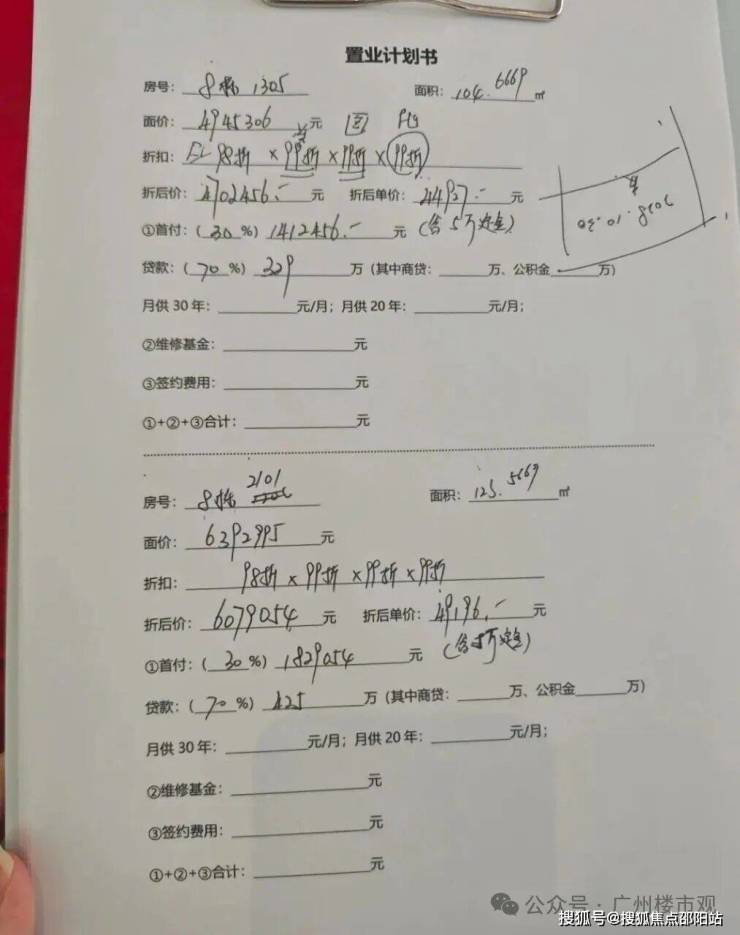 置业计划书
房号: 8栋 1305 面积: 104.6669 ㎡
面价: 4945306 元
折扣: 98折 × 99折 × 99折 × 99折
折后价: 4702456.- 元 折后单价: 44927.- 元
①首付: ( 30 %) 1412456.- 元 (含5万定金)
贷款: ( 70 %) 329 万 (其中商贷: 万、公积金 万)
月供 30 年: 元/月; 月供 20 年: 元/月;
②维修基金: 元
③签约费用: 元
①+②+③合计: 元
房号: 8栋 2101 面积: 123.5669 ㎡
面价: 6392995 元
折扣: 98折 × 99折 × 99折 × 99折
折后价: 6079054 元 折后单价: 49196.- 元
①首付: ( 30 %) 1829054 元 (含5万定金)
贷款: ( 70 %) 425 万 (其中商贷: 万、公积金 万)
月供 30 年: 元/月; 月供 20 年: 元/月;
②维修基金: 元
③签约费用: 元
①+②+③合计: 元
公众号 · 广州楼市观
搜狐号@搜狐焦点邵阳站